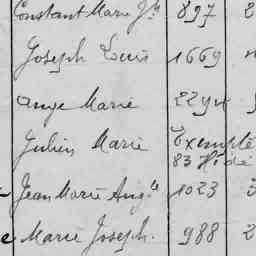 Constant Marie Jh 897 2
Joseph Louis 1669
Ange Marie
Julien Marie Exempté
83
Jean Marie Ang.te 1023 3
Marie Joseph. 988 2